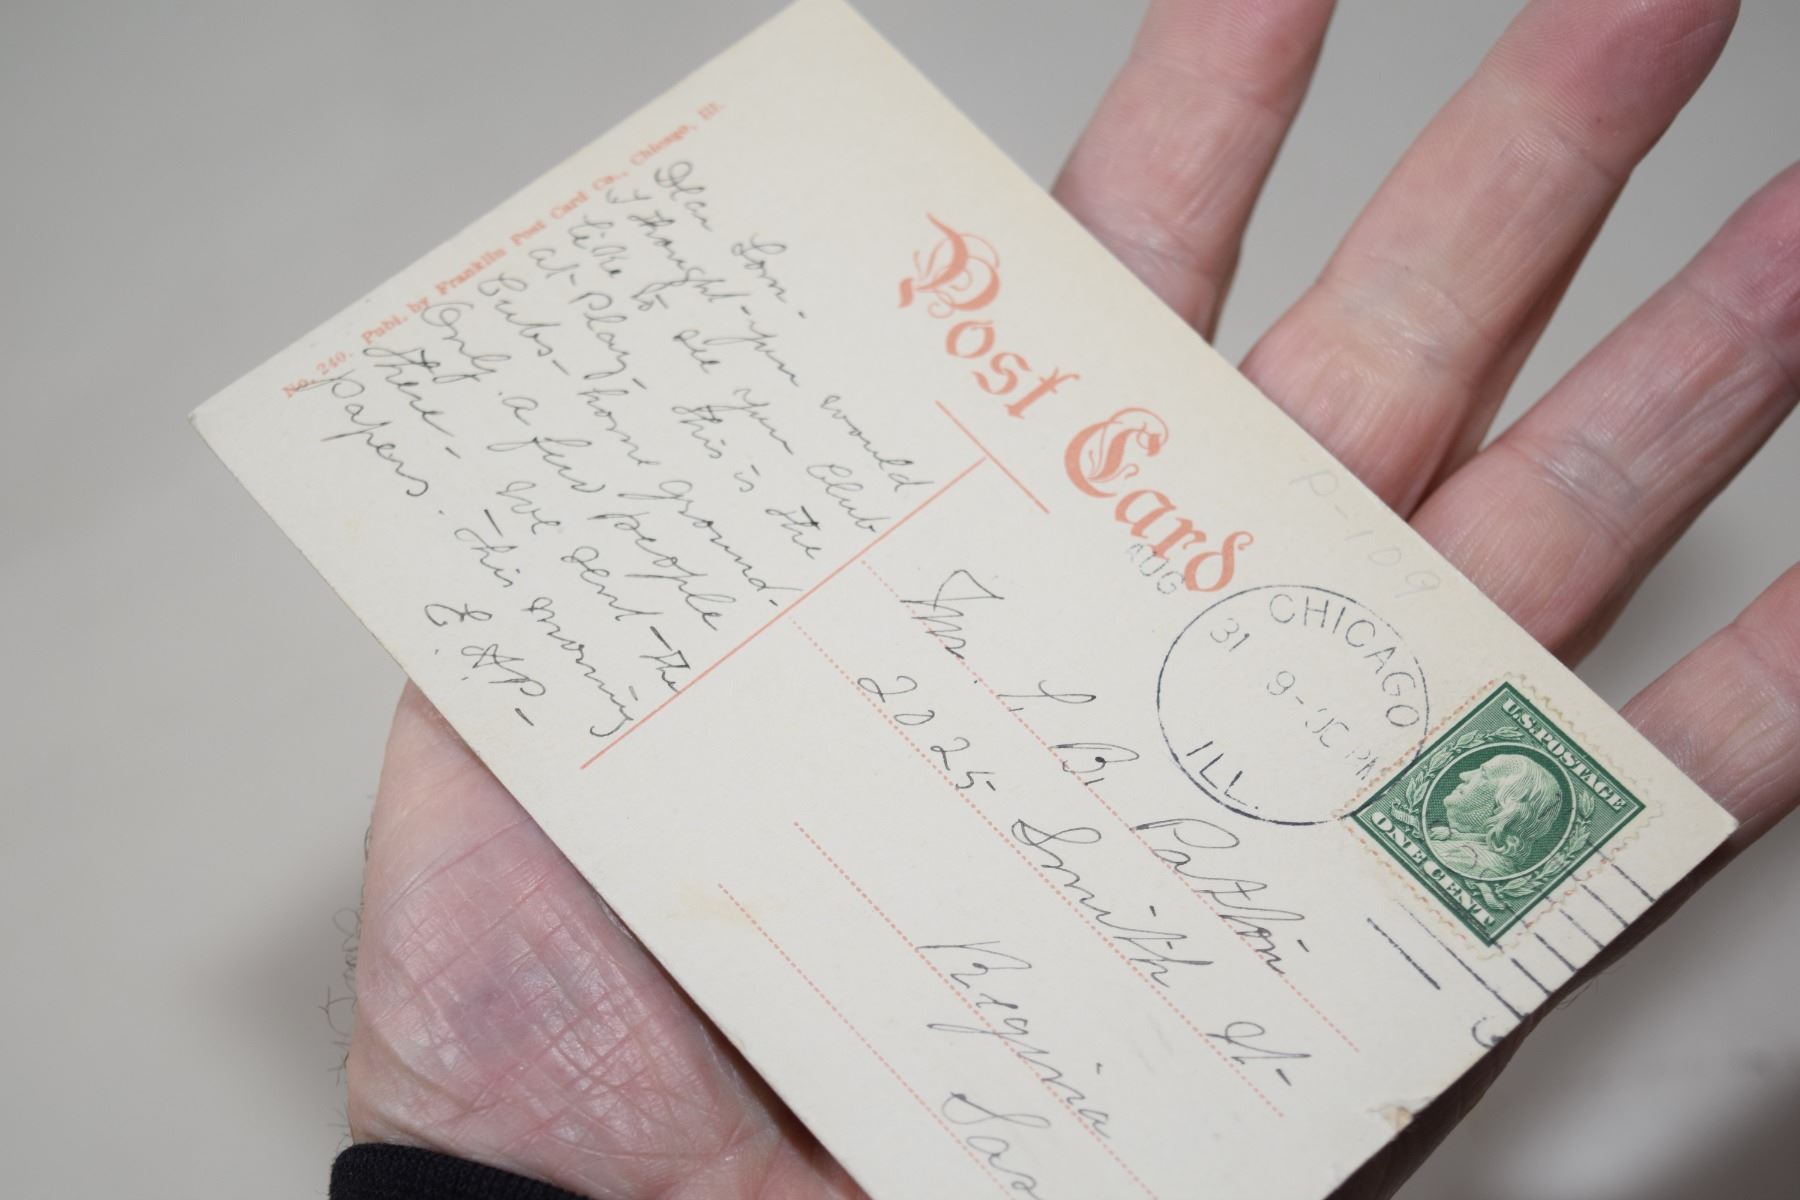 No. 240. Publ. by Franklin Post Card Co., Chicago, Ill.
Post Card
Dear Lori-
I thought you would
like to see your Club
at play- this is the
Cubs- home ground-
Only a few people
there- we send the
papers. this morning
E. HP-
P-109
AUG
CHICAGO
31
9-30 PM
ILL.
U.S. POSTAGE
ONE CENT
Mr. L. B.
2025 Smith St-
Regina
Sas